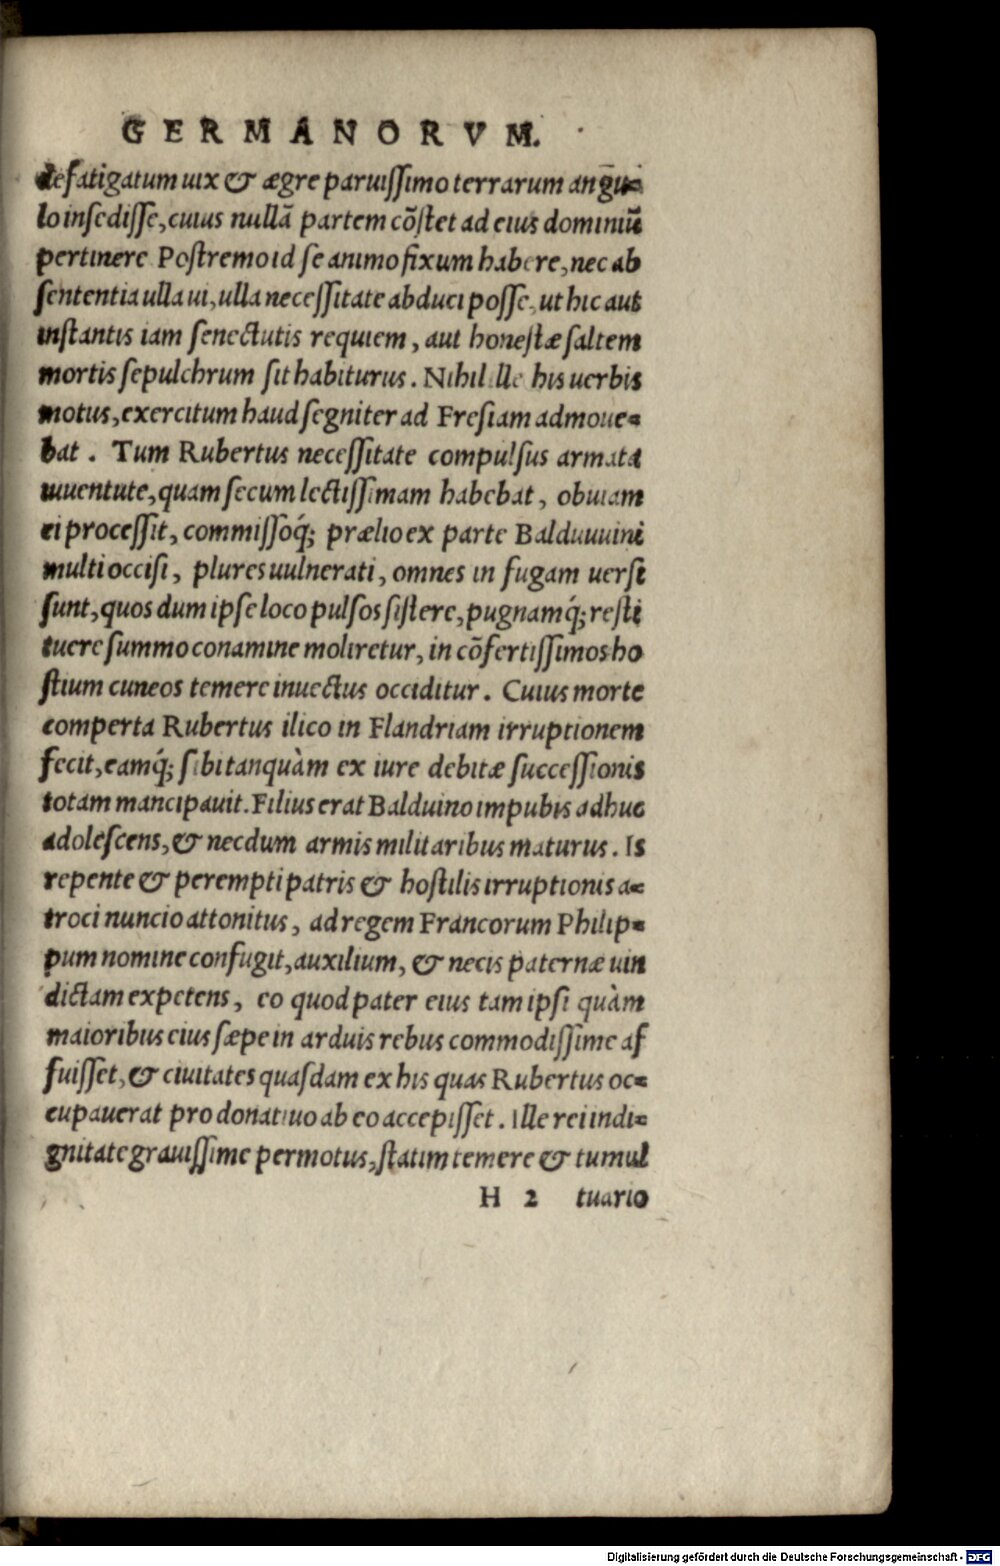 GERMANORVM.
defatigatum uix & ægre paruissimo terrarum angu̅-
lo insedisse, cuius nullã partem cõstet ad eius dominiũ
pertinere Postremo id se animo fixum habere, nec ab
sententia ulla ui, ulla necessitate abduci posse, ut hic aut
instantis iam senectutis requiem, aut honestæ saltem
mortis sepulchrum sit habiturus. Nihil ille his uerbis
motus, exercitum haud segniter ad Fresiam admoue-
bat. Tum Rubertus necessitate compulsus armata
iuuentute, quam secum lectissimam habebat, obuiam
ei processit, commissoq́; prælio ex parte Balduuuini
multi occisi, plures uulnerati, omnes in fugam uersi
sunt, quos dum ipse loco pulsos sistere, pugnamq́; resti
tuere summo conamine moliretur, in cõfertissimos ho
stium cuneos temere inuectus occiditur. Cuius morte
comperta Rubertus ilico in Flandriam irruptionem
fecit, eamq́; sibi tanquàm ex iure debitæ successionis
totam mancipauit. Filius erat Balduino impubis adhuc
adolescens, & necdum armis militaribus maturus. Is
repente & perempti patris & hostilis irruptionis a-
troci nuncio attonitus, ad regem Francorum Philip-
pum nomine confugit, auxilium, & necis paternæ uin
dictam expetens, eo quod pater eius tam ipsi quàm
maioribus eius sæpe in arduis rebus commodissime af
fuisset, & ciuitates quasdam ex his quas Rubertus oc-
cupauerat pro donatiuo ab eo accepisset. Ille rei indi-
gnitate grauissime permotus, statim temere & tumul
H 2 tuario
Digitalisierung gefördert durch die Deutsche Forschungsgemeinschaft - DFG